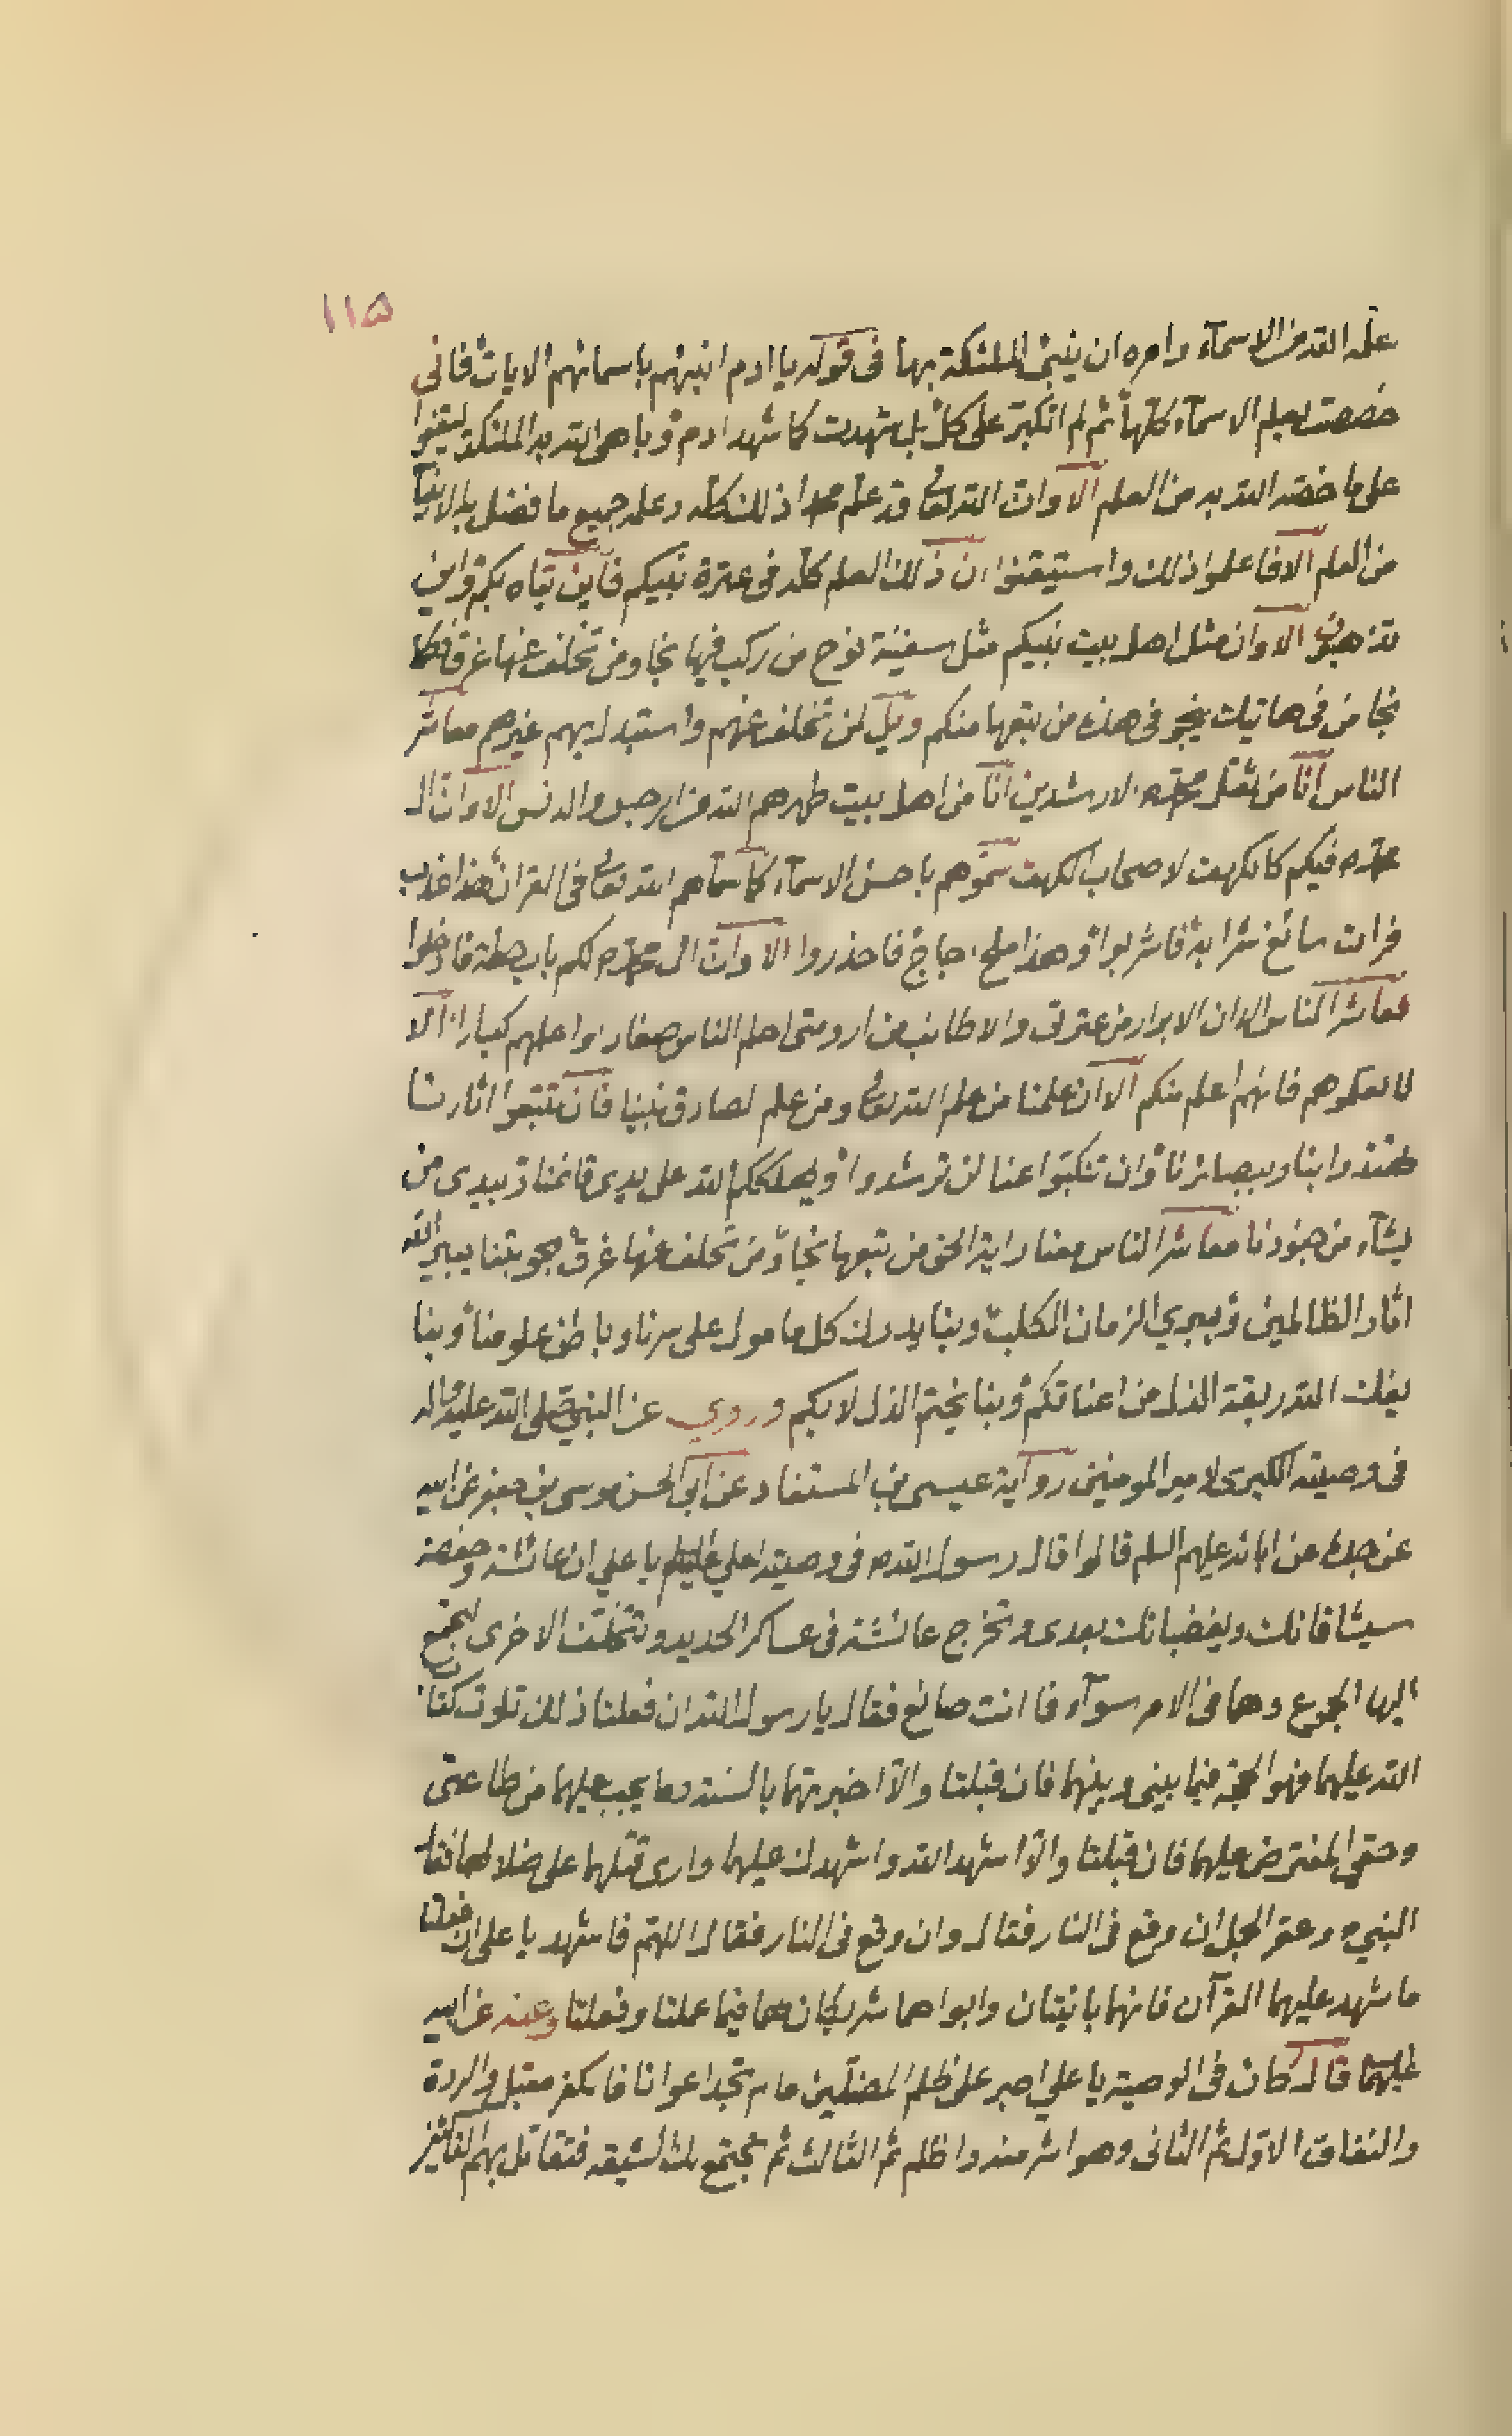 ١١٥
علمه الله من الاسمآء وامره ان ينبئ الملئكة بها فى قوله يا ادم انبئهم باسمائهم الايات فانى
خصصت بعلم الاسمآء كلها ثم لم اتكبر على كل بل شهدت كما شهد ادم و باهى الله به الملئكة ليقفوا
على ما خصه الله به من العلم الا وان الله تعالى قد علم محمدا ذلك كله وعلمه جميع ما فضل به الانبيآء
من العلم الا فاعلموا ذلك واستيقنوا ان ذلك العلم كله فى عترة نبيكم فاين يتاه بكم واين
تذهبون الا وان مثل اهل بيت نبيكم مثل سفينة نوح من ركب فيها نجا ومن تخلف عنها غرق فكما
نجا من فى هاتيك ينجو فى هذه من يتبعها منكم ويل لمن تخلف عنهم واستبدل بهم غيرهم معاشر
الناس انا من الارشدين انا من اهل بيت طهرهم الله من الرجس والدنس الا وان ال
محمد فيكم كالكهف لاصحاب الكهف سموهم باحسن الاسمآء كما سماهم الله تعالى فى القران هذا عذب
فرات سائغ شرابه فاشربوا وهذا ملح اجاج فاحذروا الا وان ال محمد لكم باب حطة فادخلوا
معاشر الناس الا وان الابرار من عترتى والاطائب من ارومتى احلم الناس صغارا واعلمهم كبارا الا
لا تعلموهم فانهم اعلم منكم الا ان علمنا من علم الله تعالى ومن علم لصادق نبينا فان تتبعوا اثارنا
تهتدوا بنا وببصائرنا وان تنكبوا عنا لن ترشدوا ويهلككم الله على يدى قائمنا و بيدى من
يشآء من جنودنا معاشر الناس معنا راية الحق من يتبعها نجا ومن تخلف عنها غرق يمحو الله
اثار الظالمين و الزمان الكلب وبنا يدرك كل مامول على سرنا وباطن علومنا وبنا
يفك الله ربقة الذل من اعناقكم وبنا يختم الذل لا بكم وروي عن النبي صلى الله عليه واله
فى وصيته الكبرى لامير المومنين رواية عيسى بن المستفاد عن ابى الحسن موسى بن جعفر عن ابيه
عن جده عن ابائه عليهم السلم قالوا قال رسول الله ص فى وصيته لعلي يا علي ان عائشة وحفصة
سيشاقانك ويبغضانك بعدى وتخرج عائشة فى عساكر الحديد وتتخلف الاخرى لتجمع
اليها الجموع وهما فى الامر سوآء فما انت صانع فقال يا رسول الله ان فعلتا ذلك تلوت كتاب
الله عليهما فهو الحجة فيما بينى وبينهما فان قبلتا والا اخبرتهما بالسنة وما يجب عليهما من طاعتى
وحقى المفترض عليهما فان قبلتا والا اشهد الله واشهدك عليهما وارى قتلهما على ضلالهما فقال
النبي ص وعقر الجمل وان وقع فى النار فقال وان وقع فى النار فقال اللهم فاشهد يا على ان فعلتا
ما شهد عليهما القرآن فانهما بائنتان وابواهما شريكان لهما فيما عملتا وفعلتا وعنه عن ابيه
قال كان فى الوصية يا علي اصبر على ظلم المضلين ما لم تجد اعوانا فالكفر مقبل والردة
والنفاق الاول ثم الثانى وهو اشر منه واظلم ثم الثالث ثم تجتمع لك الشيعة فتقاتل بهم الناكثين